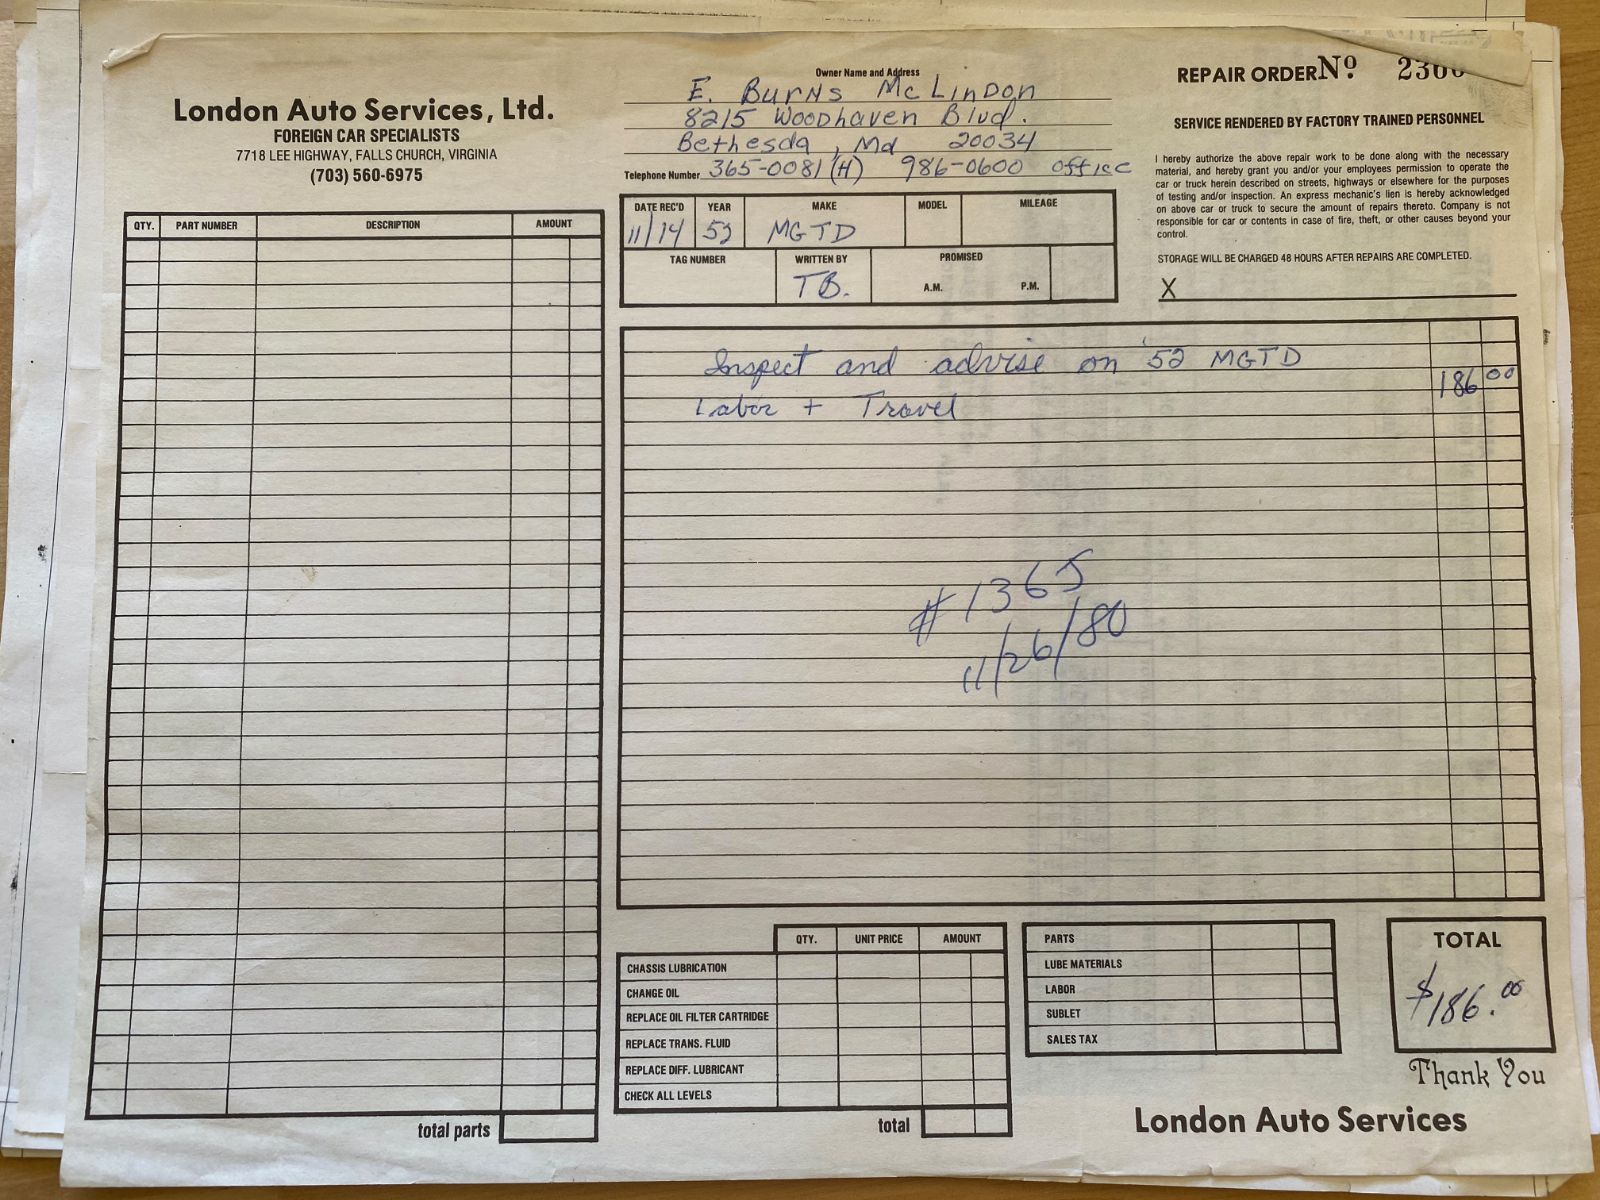 London Auto Services, Ltd.
FOREIGN CAR SPECIALISTS
7718 LEE HIGHWAY, FALLS CHURCH, VIRGINIA
(703) 560-6975
Owner Name and Address
E. Burns McLindon
8215 Woodhaven Blvd.
Bethesda, Md 20034
Telephone Number 365-0081 (H) 986-0600 office
REPAIR ORDER Nº
SERVICE RENDERED BY FACTORY TRAINED PERSONNEL
I hereby authorize the above repair work to be done along with the necessary
material, and hereby grant you and/or your employees permission to operate the
car or truck herein described on streets, highways or elsewhere for the purposes
of testing and/or inspection. An express mechanic's lien is hereby acknowledged
on above car or truck to secure the amount of repairs thereto. Company is not
responsible for car or contents in case of fire, theft, or other causes beyond your
control.
STORAGE WILL BE CHARGED 48 HOURS AFTER REPAIRS ARE COMPLETED.
X
DATE REC'D YEAR MAKE MODEL MILEAGE
11/14 52 MGTD
TAG NUMBER WRITTEN BY PROMISED
TB. A.M. P.M.
QTY. PART NUMBER DESCRIPTION AMOUNT
Inspect and advise on '52 MGTD
186 00
Labor + Travel
#1365
11/26/80
total parts
QTY. UNIT PRICE AMOUNT
CHASSIS LUBRICATION
CHANGE OIL
REPLACE OIL FILTER CARTRIDGE
REPLACE TRANS. FLUID
REPLACE DIFF. LUBRICANT
CHECK ALL LEVELS
total
PARTS
LUBE MATERIALS
LABOR
SUBLET
SALES TAX
TOTAL
$186.00
Thank You
London Auto Services